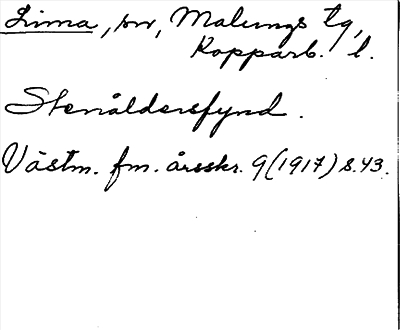 Lima, sn, Malungs tg,
Kopparb. l.
Stenåldersfynd.
Västm. fm. årsskr. 9 (1917) s. 43.